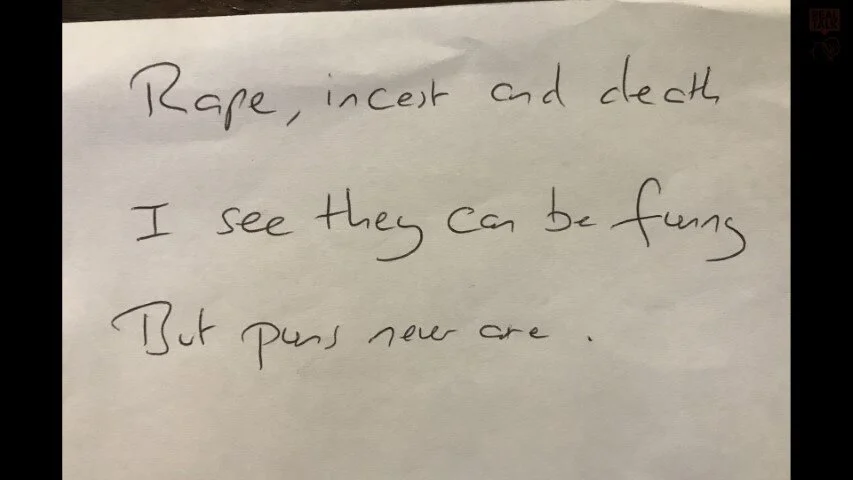 Rape, incest and death
I see they can be funny
But puns never are.